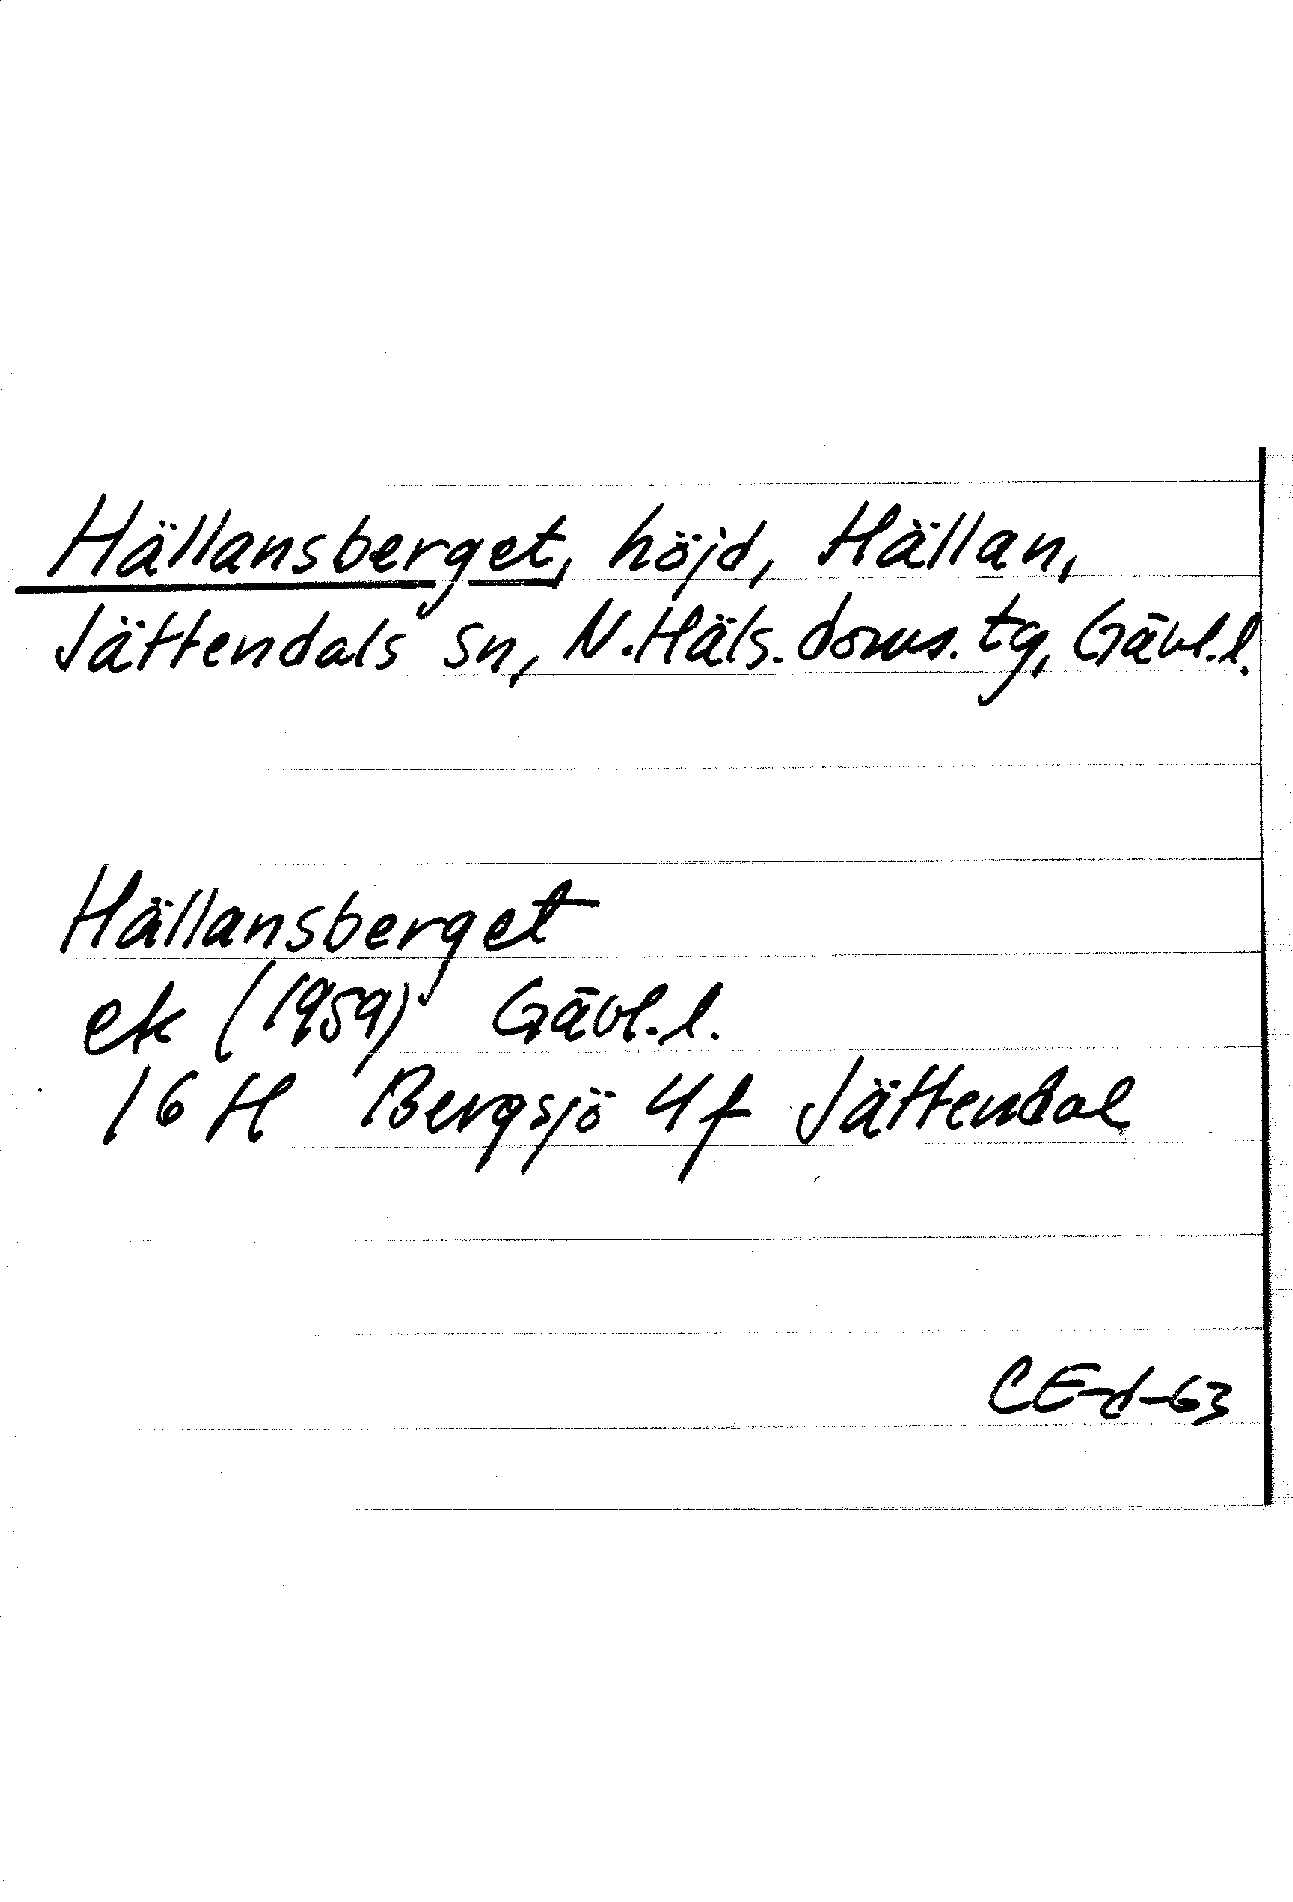 Hällansberget, höjd, Hällan,
Jättendals sn, N.Häls. doms. tg, Gävl.l.
Hällansberget
ek (1959) Gävl.l.
16 H Bergsjö 4f Jättendal
CE-d-63